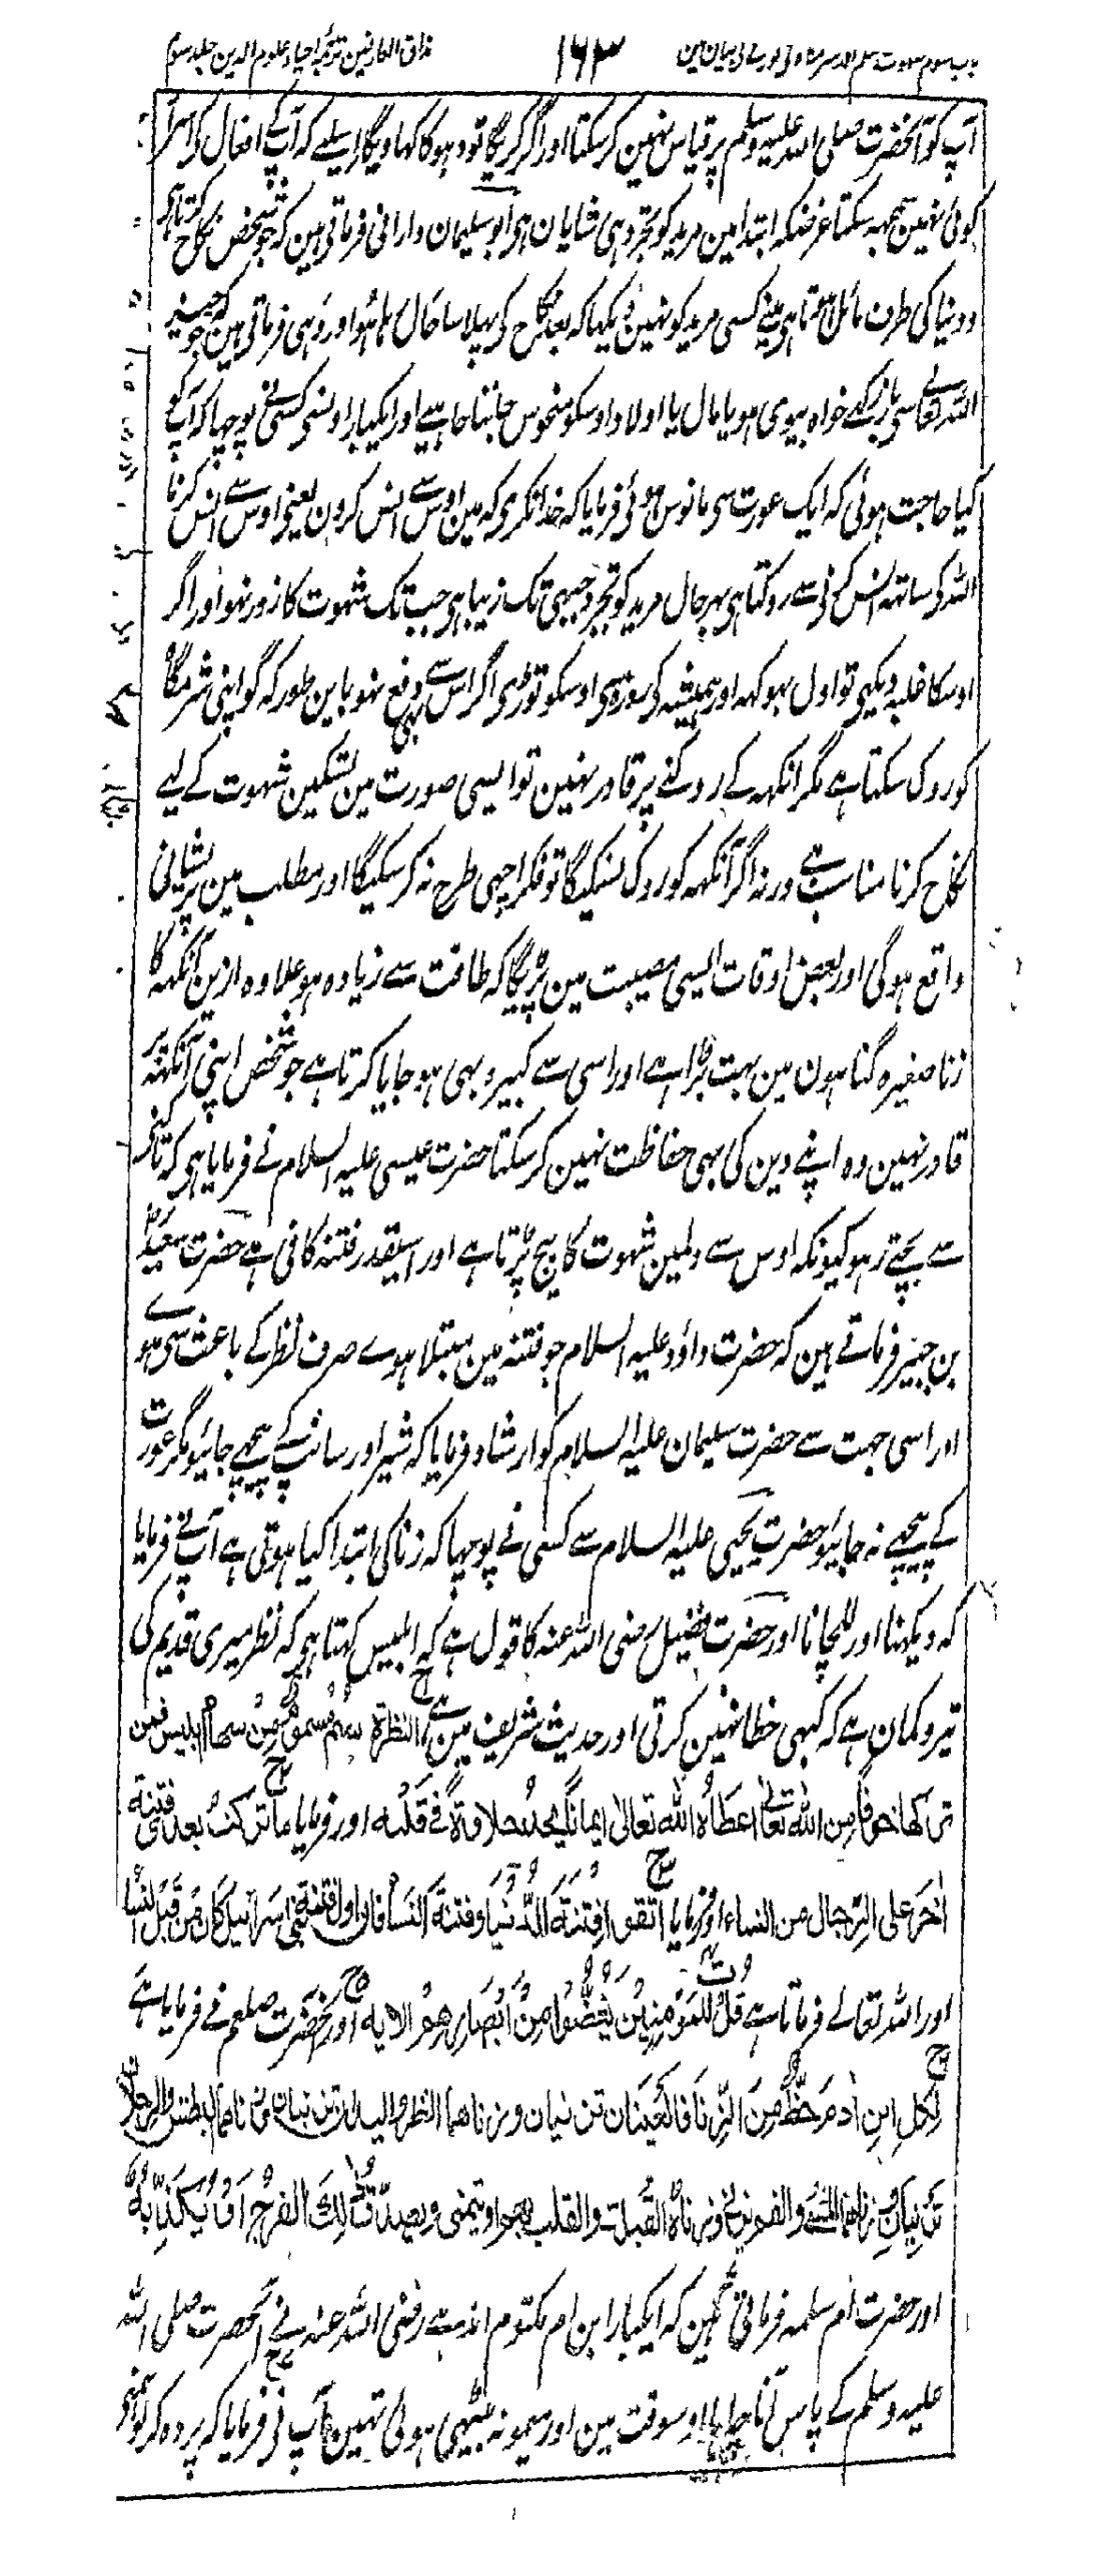 مذاق العارفین ترجمہ احیاء علوم الدین جلد سوم
۱۶۳
باب سوم شہوت شکم اور شرمگاہ کی توڑنے کی بیان مین
آپ کو آنحضرت صلی اللہ علیہ وسلم پر قیاس نہین کر سکتا اور اگر کریگا تو دہوکا کہاویگا اسلیے کہ آپ کے افعال کے اسرار
کوئی نہین سمجہہ سکتا غرضکہ ابتدا مین مرید کو تجرد ہی شایان ہی ابو سلیمان دارانی فرماتی ہین کہ جو شخص نکاح کرتا ہی
وہ دنیا کی طرف مائل ہوتا ہی مینے کسی مرید کو نہین دیکہا کہ بعد نکاح کی پہلا سا حال رہا ہو اور وہی فرماتی ہین کہ جو چیز
اللہ تعالی سی باز رکہے خواہ بیوی ہو یا مال یا اولاد اوسکو منحوس جاننا چاہیے اور ایکبار اونسی کسی نے پوچہا کہ آپ کو
کیا حاجت ہوئی کہ ایک عورت سی مانوس ہوئی فرمایا کہ خدا نکری کہ مین اوس سے انس کرون یعنی اوس سے انس کرنا
اللہ کی ساتہہ انس کرنی سے روکتا ہی بہر حال مرید کو تجرد جبہی تک زیبا ہی جب تک شہوت کا زور نہو اور اگر
اوسکا غلبہ دیکہی تو اول بہوکہہ اور ہمیشہ کی روزہ سی اوسکو توڑی اگر اس سے بہی دفع نہو باین طور کہ گو اپنی شرمگاہ
کو روک سکتا ہے مگر آنکہہ کے روکنے پر قادر نہین تو ایسی صورت مین تسکین شہوت کے لیے
نکاح کرنا مناسب ہے ورنہ اگر آنکہہ کو روک نسکیگا تو فکر اچہی طرح نہ کر سکیگا اور مطلب مین پریشانی
واقع ہوگی اور بعض اوقات ایسی مصیبت مین پڑیگا کہ طاقت سے زیادہ ہو علاوہ ازین آنکہہ کا
زنا صغیرہ گناہون مین بہت بڑا ہے اور اسی سے کبیرہ بہی ہو جایا کرتا ہے جو شخص اپنی آنکہہ پر
قادر نہین وہ اپنے دین کی بہی حفاظت نہین کر سکتا حضرت عیسی علیہ السلام نے فرمایا ہی کہ تاکنے
سے بچتے رہو کیونکہ اوس سے دلمین شہوت کا بیج پڑتا ہے اور اسیقدر فتنہ کافی ہے حضرت سعید
بن جبیر فرماتے ہین کہ حضرت داؤد علیہ السلام جو فتنہ مین مبتلا ہوے صرف نظر کے باعث سی ہوے
اور اسی جہت سے حضرت سلیمان علیہ السلام کو ارشاد فرمایا کہ شیر اور سانپ کے پیچہے جائیو مگر عورت
کے پیچہے نہ جائیو حضرت یحیی علیہ السلام سے کسی نے پوچہا کہ زنا کی ابتدا کیا ہوتی ہے آپ نے فرمایا
کہ دیکہنا اور للچانا اور حضرت فضیل رضی اللہ عنہ کا قول ہے کہ ابلیس کہتا ہی کہ نظر میری قدیم کی
تیر و کمان ہے کہ کبہی خطا نہین کرتی اور حدیث شریف مین ہے النظرة سهم مسموم من سهام ابليس فمن
تركها خوفا من الله تعالى اعطاه الله تعالى ايمانا يجد حلاوته في قلبه اور فرمایا ما تركت بعدي فتنة
اضر على الرجال من النساء اور فرمایا اتقوا فتنة الدنيا وفتنة النساء فان اول فتنة بني اسرائيل كان من قبل النساء
اور اللہ تعالے فرماتا ہے قل للمؤمنين يغضوا من ابصارهم الایہ اور آنحضرت صلعم نے فرمایا ہے
لكل ابن ادم حظ من الزنا فالعينان تزنيان وزناهما النظر واليدان تزنيان وزناهما البطش والرجلان
تزنيان وزناهما المشي والفم يزني وزناه القبلة والقلب يهم او يتمنى ويصدق ذلك الفرج او يكذبه
اور حضرت ام سلمہ فرماتی ہین کہ ایکبار ابن ام مکتوم اندہے رضی اللہ عنہ نے آنحضرت صلی اللہ
علیہ وسلم کے پاس آنا چاہا اوسوقت مین اور میمونہ بیٹہی ہوئی تہین آپ نی فرمایا کہ پردہ کر لو